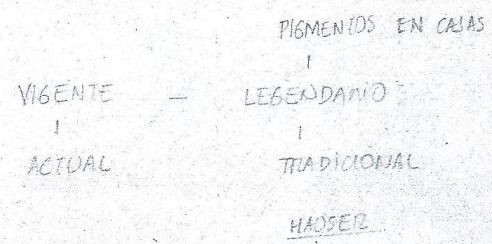 PIGMENTOS EN CASAS
VIGENTE — LEGENDARIO
ACTUAL TRADICIONAL
HAUSER